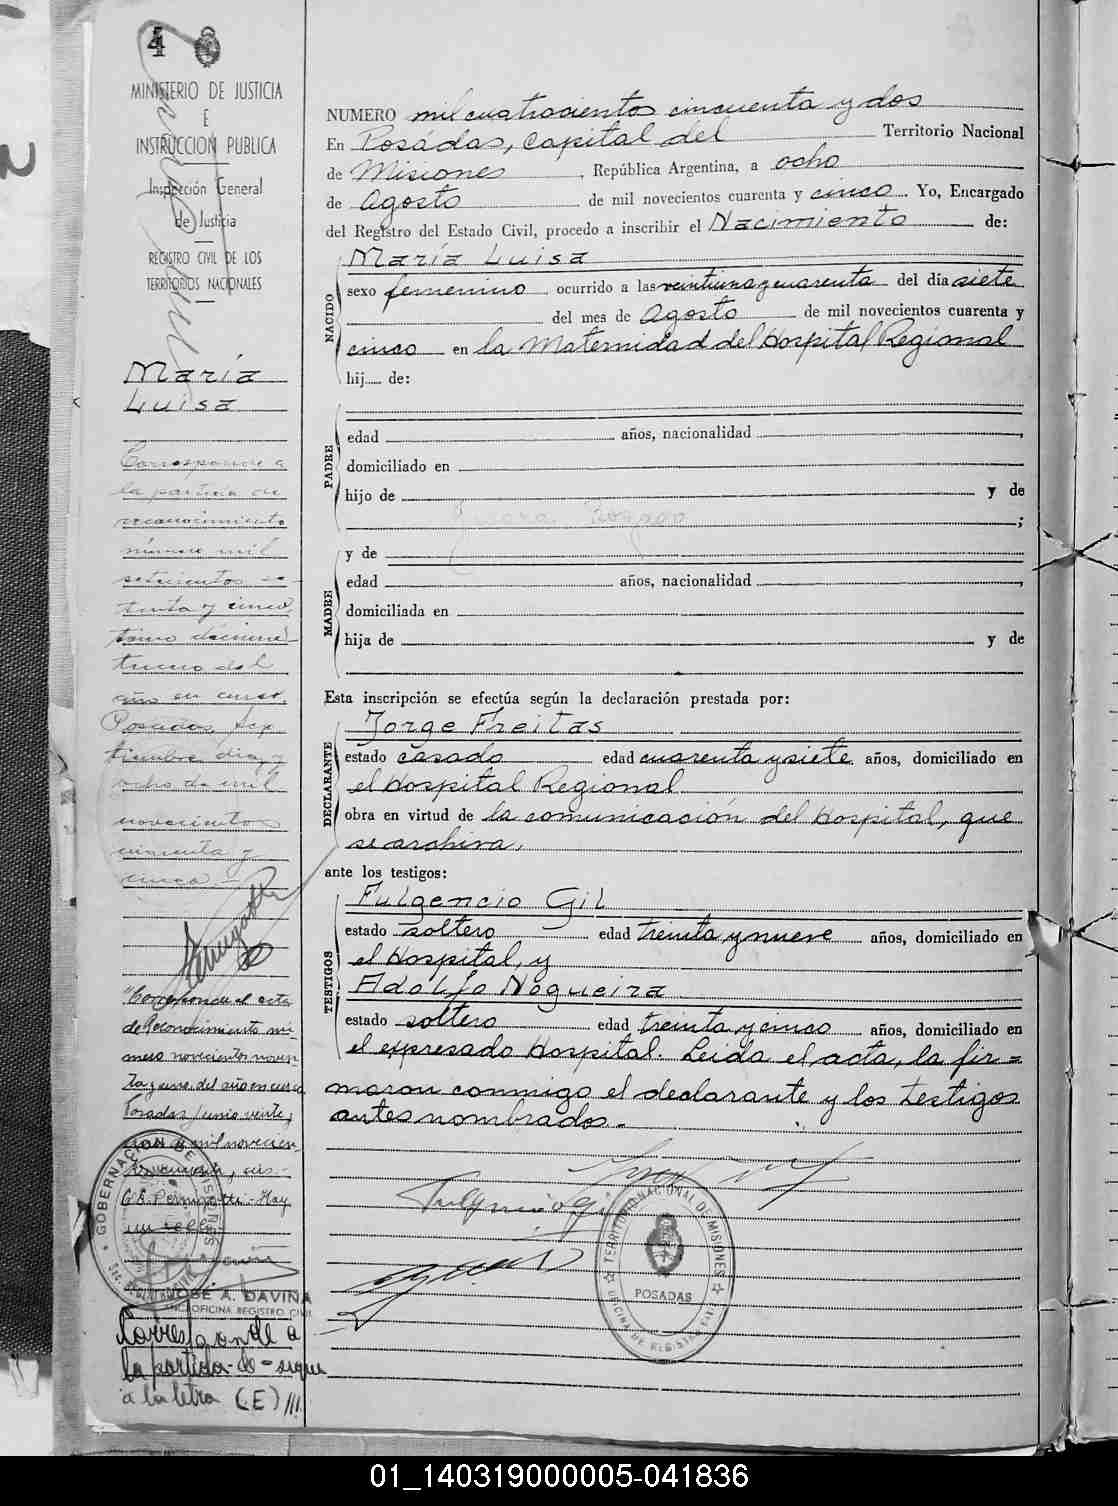 4
MINISTERIO DE JUSTICIA
E
INSTRUCCIÓN PUBLICA
Inspección General
de Justicia
REGISTRO CIVIL DE LOS
TERRITORIOS NACIONALES
María
Luisa
Corresponde a
la partida de
reconocimiento
número mil
setecientos se-
tenta y cinco
tomo décimo
tercero del
año en curso.
Posadas, Sep
tiembre diez y
ocho de mil
novecientos
cuarenta y
cinco.-
"Corresponde al acta
de Reconocimiento nú-
mero novecientos noven-
ta y uno del año en curso
Posadas, Junio veinte
mil novecien-
C. E. Permigotti - Hay
un sello
GOBERNACION DE MISIONES
JOSÉ A. DAVIÑA
OFICINA REGISTRO CIVIL
Corresponde a
la partida de - sigue
a la letra (E) ///
NUMERO mil cuatrocientos cincuenta y dos
En Posádas, capital del Territorio Nacional
de Misiones, República Argentina, a ocho
de Agosto de mil novecientos cuarenta y cinco. Yo, Encargado
del Registro del Estado Civil, procedo a inscribir el Nacimiento de:
NACIDO
María Luisa
sexo femenino, ocurrido a las veintiuna y cuarenta del día siete
del mes de Agosto de mil novecientos cuarenta y
cinco en la Maternidad del Hospital Regional
hij de:
PADRE
edad años, nacionalidad ,
domiciliado en
hijo de y de
;
MADRE
y de
edad años, nacionalidad ,
domiciliada en
hija de y de
Esta inscripción se efectúa según la declaración prestada por:
DECLARANTE
Jorge Freitas
estado casado edad cuarenta y siete años, domiciliado en
el Hospital Regional
obra en virtud de la comunicación del Hospital, que
se archiva.
ante los testigos:
TESTIGOS
Fulgencio Gil
estado soltero edad treinta y nueve años, domiciliado en
el Hospital, y
Adolfo Nogueira
estado soltero edad treinta y cinco años, domiciliado en
el expresado Hospital. Leida el acta, la fir=
maron conmigo el declarante y los testigos
antes nombrados.-
TERRITORIO NACIONAL DE MISIONES
POSADAS
OFICINA DE REGISTRO CIVIL
01_140319000005-041836